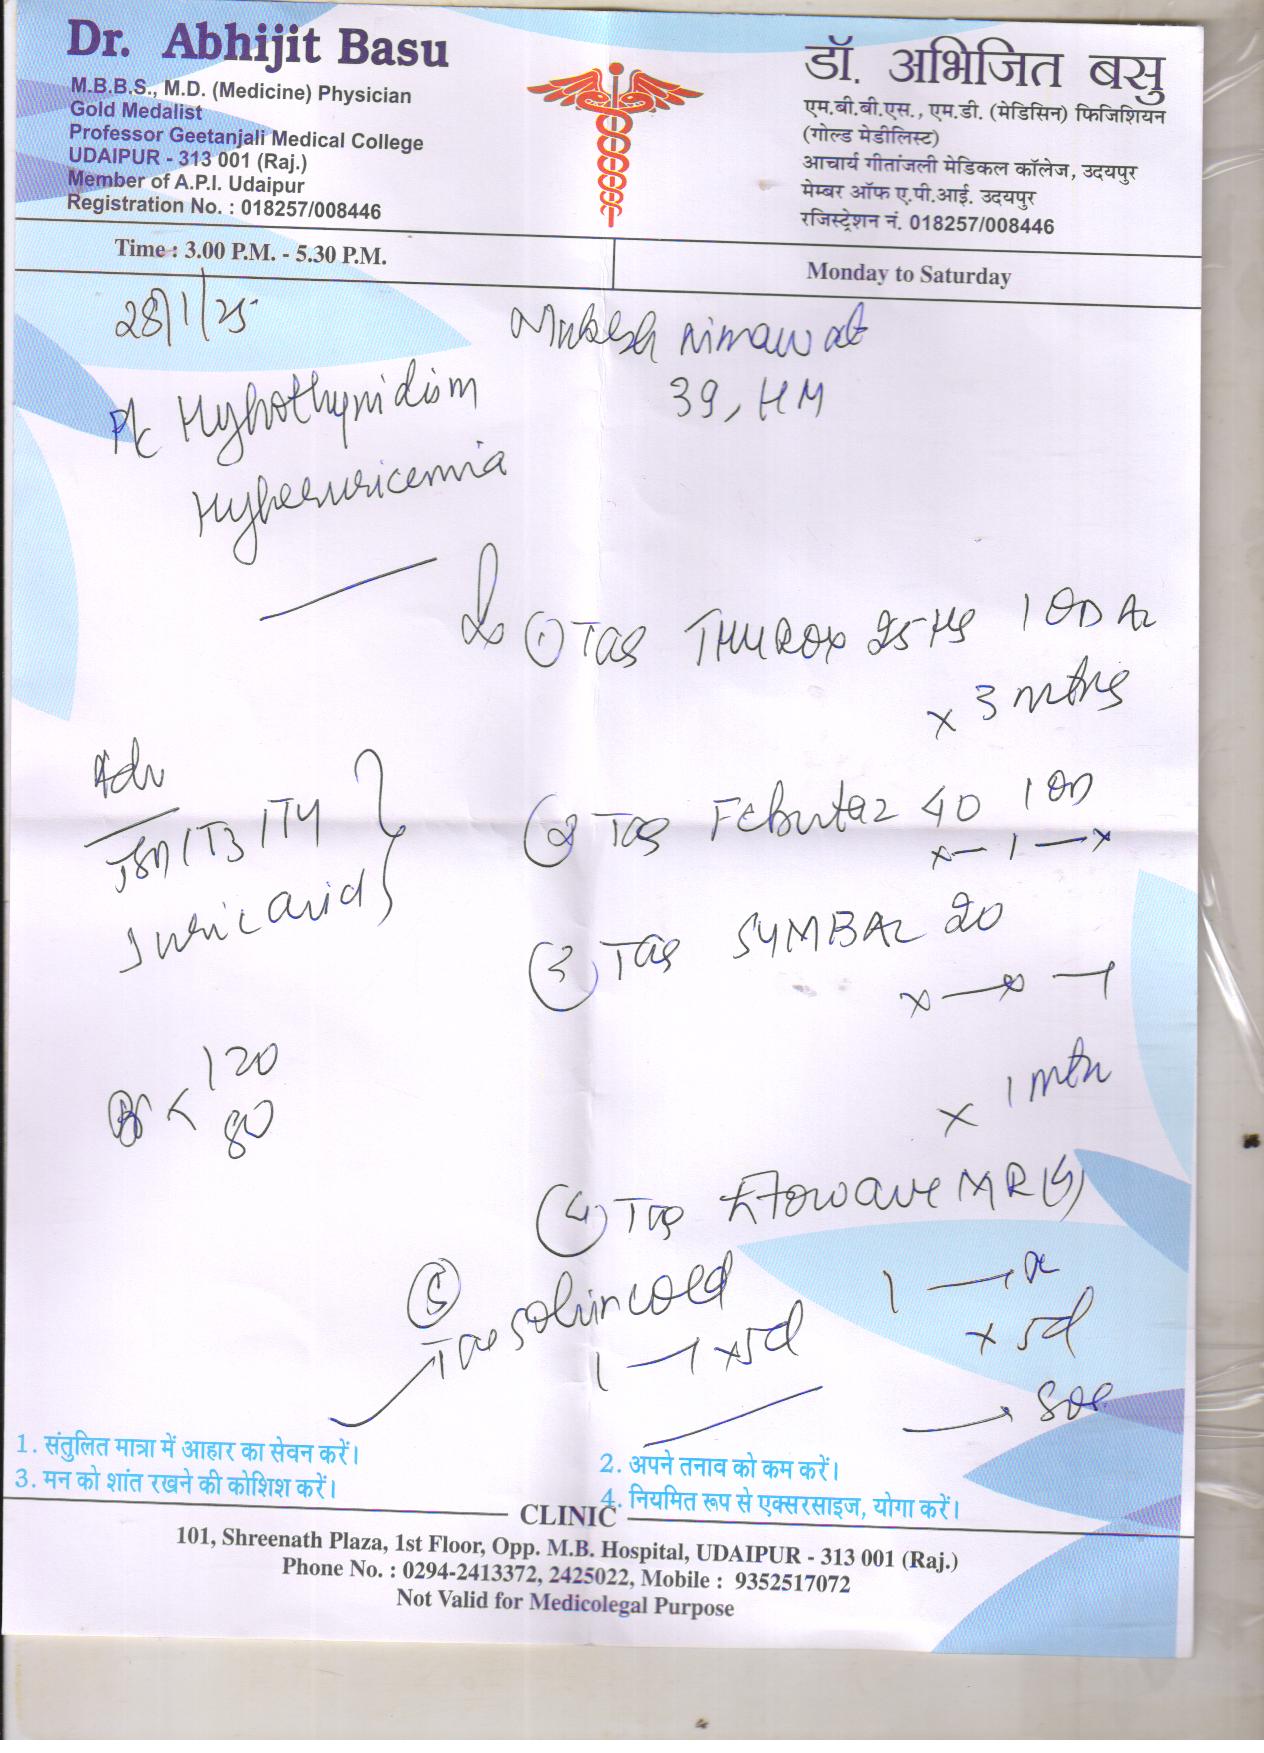 Dr. Abhijit Basu
M.B.B.S., M.D. (Medicine) Physician
Gold Medalist
Professor Geetanjali Medical College
UDAIPUR - 313 001 (Raj.)
Member of A.P.I. Udaipur
Registration No. : 018257/008446
डॉ. अभिजित बसु
एम.बी.बी.एस., एम.डी. (मेडिसिन) फिजिशियन
(गोल्ड मेडीलिस्ट)
आचार्य गीतांजली मेडिकल कॉलेज, उदयपुर
मेम्बर ऑफ ए.पी.आई. उदयपुर
रजिस्ट्रेशन नं. 018257/008446
Time : 3.00 P.M. - 5.30 P.M.
Monday to Saturday
28/1/25
Mukesh nimawat
39, HM
Hypothyroidism
Hyperuricemia
① Tab THYROX 25 1 OD
x 3 mths
Adv
T3/T4
uric acid
② Tab Febutaz 40 1 OD
x — 1 — x
③ Tab 20
x — x — 1
120
80
x 1 mth
④ Tab MR
1 — x
x 5d
⑤
Tab Solvin cold
1 — 1 x 5d
→ SOS
1. संतुलित मात्रा में आहार का सेवन करें।
2. अपने तनाव को कम करें।
3. मन को शांत रखने की कोशिश करें।
4. नियमित रूप से एक्सरसाइज, योगा करें।
CLINIC
101, Shreenath Plaza, 1st Floor, Opp. M.B. Hospital, UDAIPUR - 313 001 (Raj.)
Phone No. : 0294-2413372, 2425022, Mobile : 9352517072
Not Valid for Medicolegal Purpose